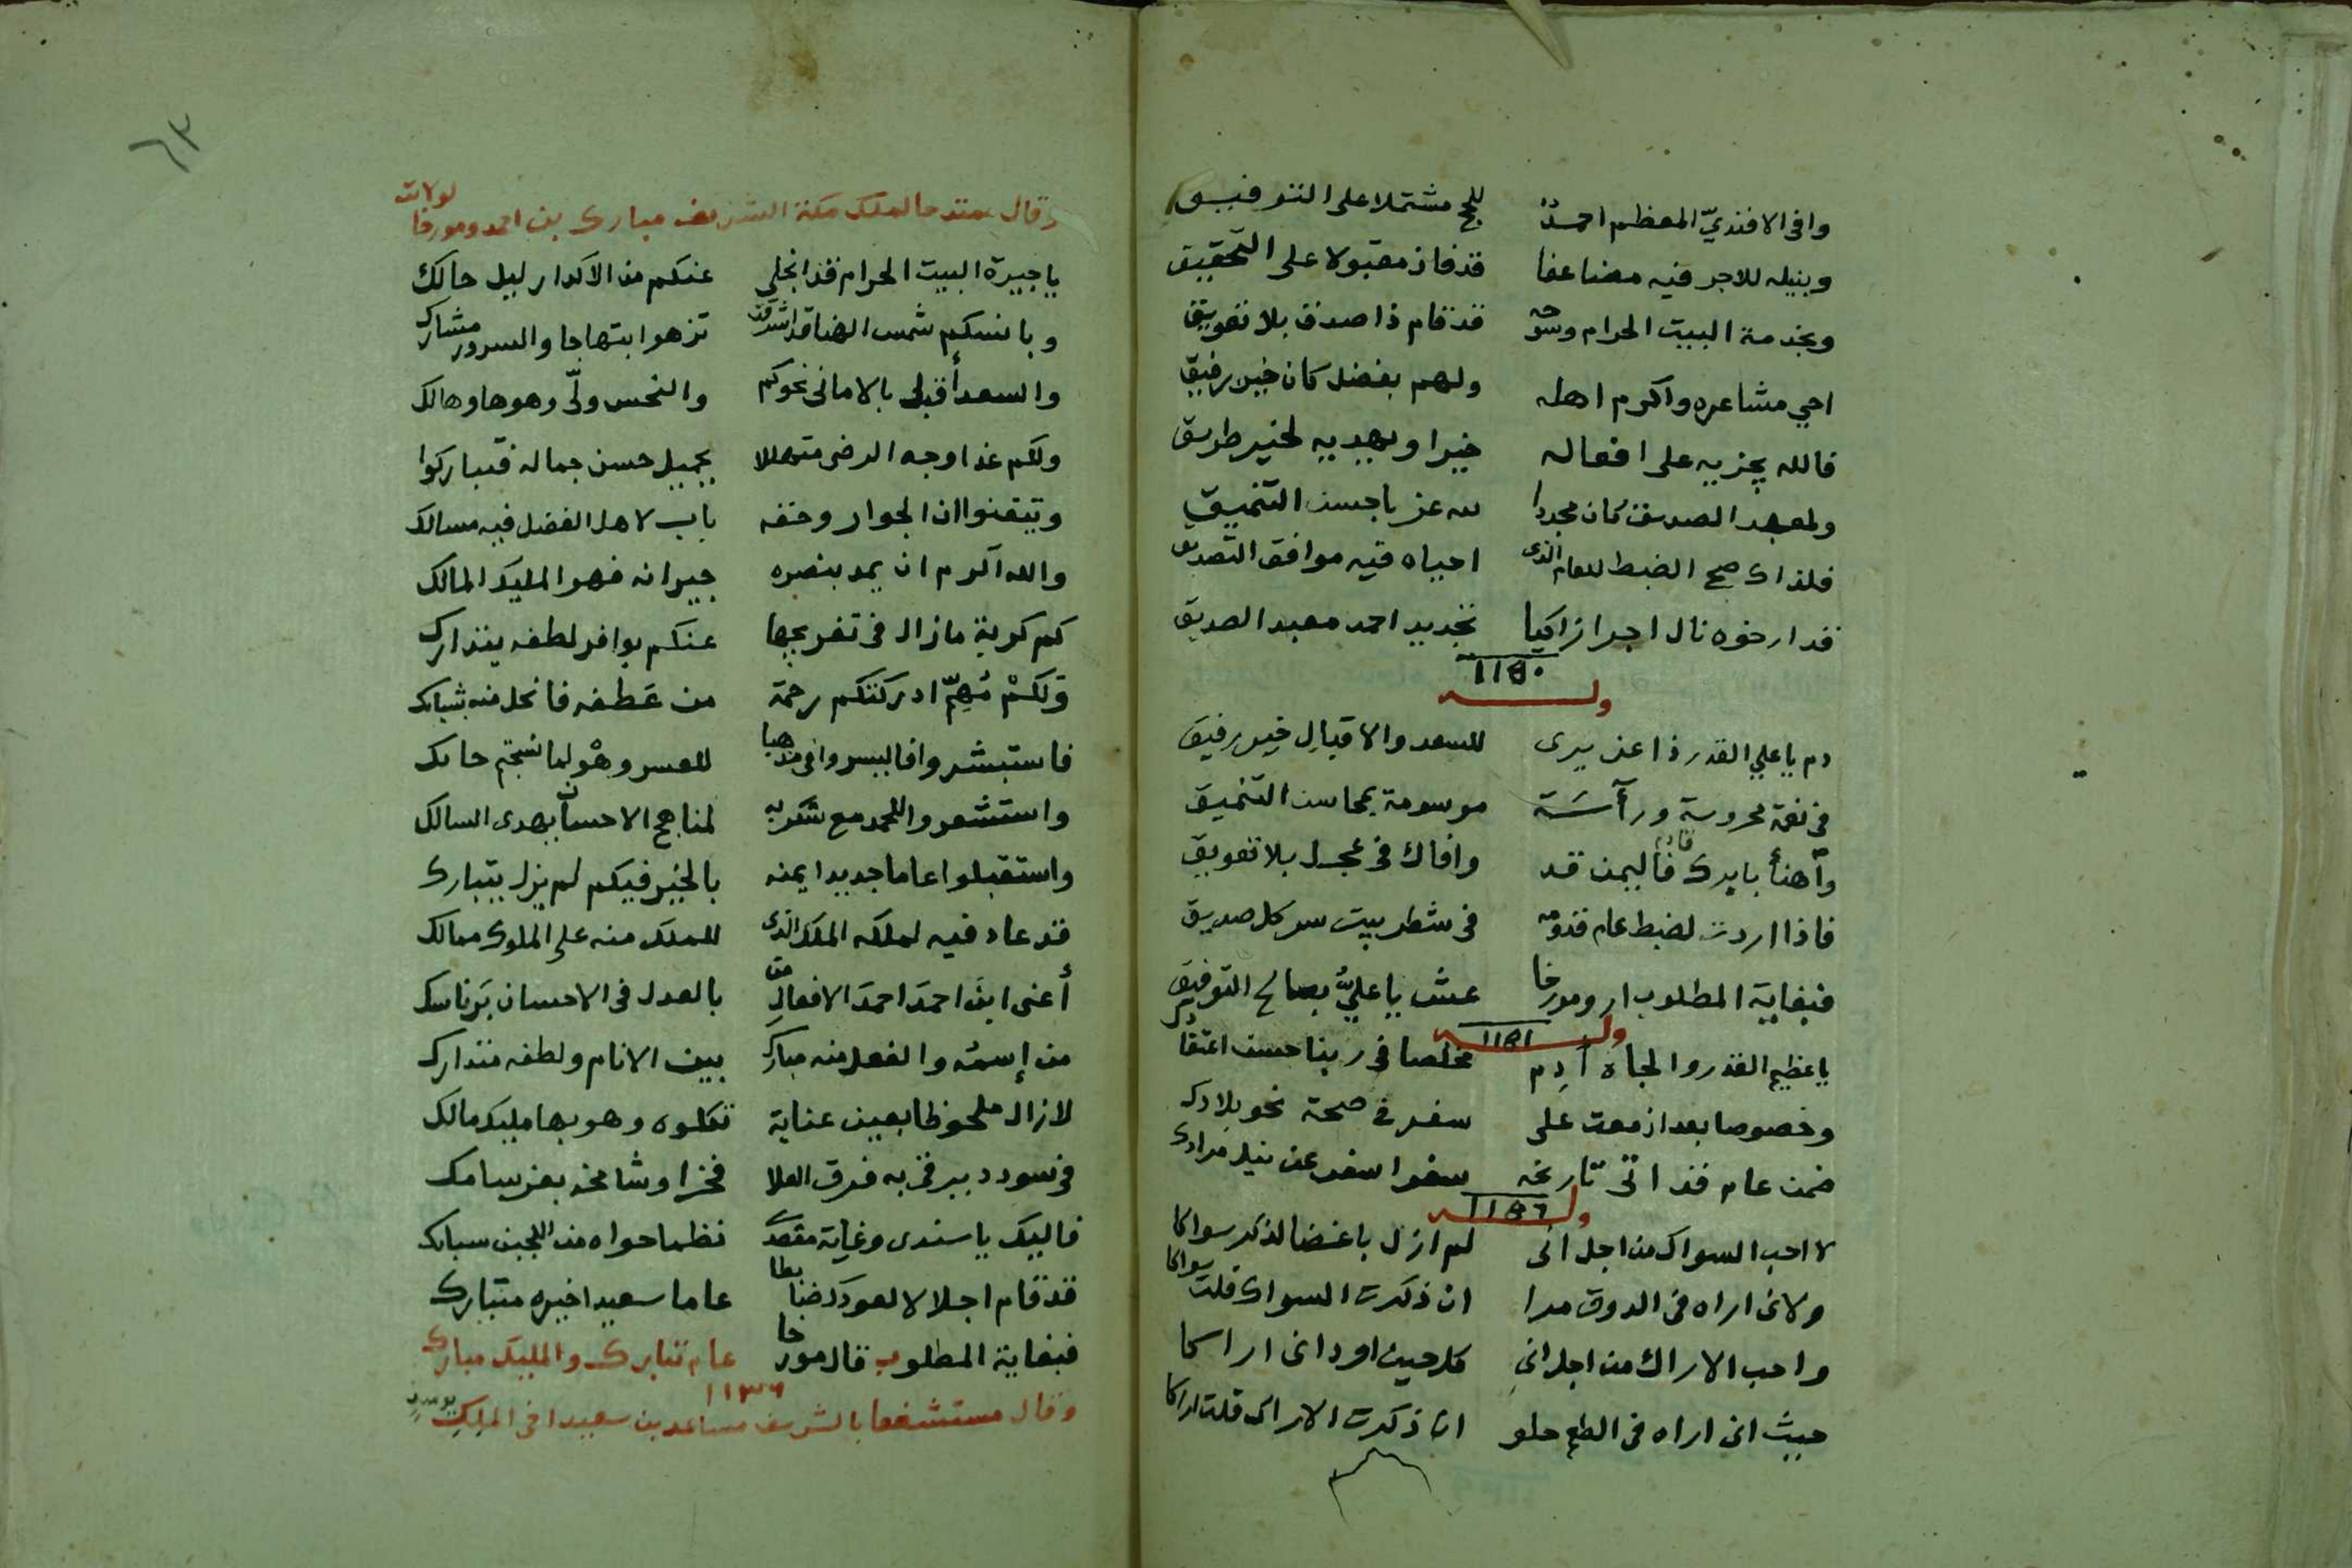 وافى الافنديّ المعظم احمدٌ للحج مشتملا على التوفيق
وبنيله للاجر فيه مضاعفا قد فاز مقبولا على التحقيق
وبخدمة البيت الحرام وسوحه قد قام ذا صدق بلا تعويق
احي مشاعره واكرم اهله ولهم بفضل كان خير رفيق
فالله يجزيه على افعاله خيرا ويهديه لخير طريق
ولمعهد الصديق كان مجددا لله عز باحسن التنميق
فلذاك صح الضبط للعام الذى احياه فيه موافق التصديق
قد ارخوه نال اجرا زاكيا تجديد احمد معبد الصديق
١١٥٠
وله
دم يا علي القدر ذا عز يرى للسعد والاقبال خير رفيق
فى نعمة محروسة ورآسَة موسومة بمحاسن التنميق
وآهنأ بايدك فاليمن قد وافاك فى عجل بلا تعويق
قادم
فاذا اردت لضبط عام قدومه فى شطر بيت سر كل صديق
فبغاية المطلوب ارو مورخا عش يا عليُّ بصالح التوفيق
وله ١١٥١
يا عظيم القدر والجاه ادِم مخلصا فى ربنا حسن اعتقادك
وخصوصا بعد ازمعت على سفر فى صحة نحو بلادك
ضمن عام قد اتى تاريخه سفرا سفر عن نيل مرادك
وله ١١٥٦
لا احب السواك من اجل انى لم ازل باغضا لذكر سواكا
ولانى اراه فى الذوق مرا ان ذكرت السواك قلت سواكا
واحب الاراك من اجل انى كل حين اود انى اراكا
حيث انى اراه فى الطعم حلو ان ذكرت الاراك قلت اراكا
٦٣
وقال ممتدحا لملك مكة الشريف مبارك بن احمد ومورخا لولايته
يا جيرة البيت الحرام قد انجلى عنكم من الاكدار ليل حالك
وبانسكم شمس الهنا قد اشرقت تزهو ابتهاجا والسرور مشارك
والسعد أقبل بالامانى نحوكم والنحس ولّى وهو هاو هالك
ولكم غدا وجه الرضى متهللا بجميل حسن جماله فتباركوا
وتيقنوا ان الجوار وحقه باب لاهل الفضل فيه مسالك
والله اكرم ان يمد بنصره جيرانه فهو المليك المالك
كم كربة ما زال فى تفريجها عنكم بوافر لطفه يتدارك
وَلكمْ مُهِمّ ادركتكم رحمة من عَطفه فانحل منه شبائك
فاستبشروا فاليسر وافى مذهبا للعسر وهْو لما نسجتم حائك
واستشعروا للحمد مع شكر به لمناهج الاحسان يهدى السالك
واستقبلوا عاما جديدا يمنه بالخير فيكم لم يزل يتبارك
قد عاد فيه لملكه الملك الذى للملك منه على الملوك ممالك
أعنى ابنَ احمدَ احمدَ الافعالِ من بالعدل فى الاحسان بَر ناسك
من إسمُه والفعل منه مبارك بين الانام ولطفه متدارك
لا زال ملحوظا بعين عناية تكلوه وهو بها مليك مالك
فى سودد يرقى به فرق العلا فخرا وشامخه بعز سامك
فاليك يا سندى وغاية مقصدى نظما حواه من اللجين سبائك
قد قام اجلالا لعودك ضابطا عاما سعيدا خيره متبارك
فبغاية المطلوب قال مورخا عام تبارك والمليك مبارك
١١٣٦
وقال مستشفعا بالشريف مساعد بن سعيد اخى الملِك يومئذ